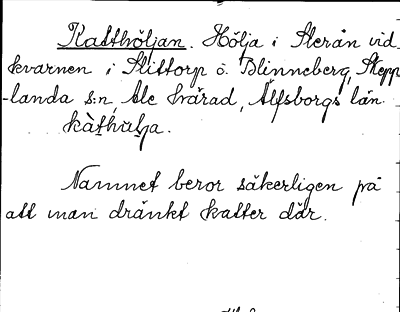 Katthöljan. Hölja i Sterån vid
kvarnen i Slittorp o. Blinneberg, Skepp
-landa s:n, Ale härad, Älfsborgs län.
kàthùlja.
Namnet beror säkerligen på
att man dränkt katter där.